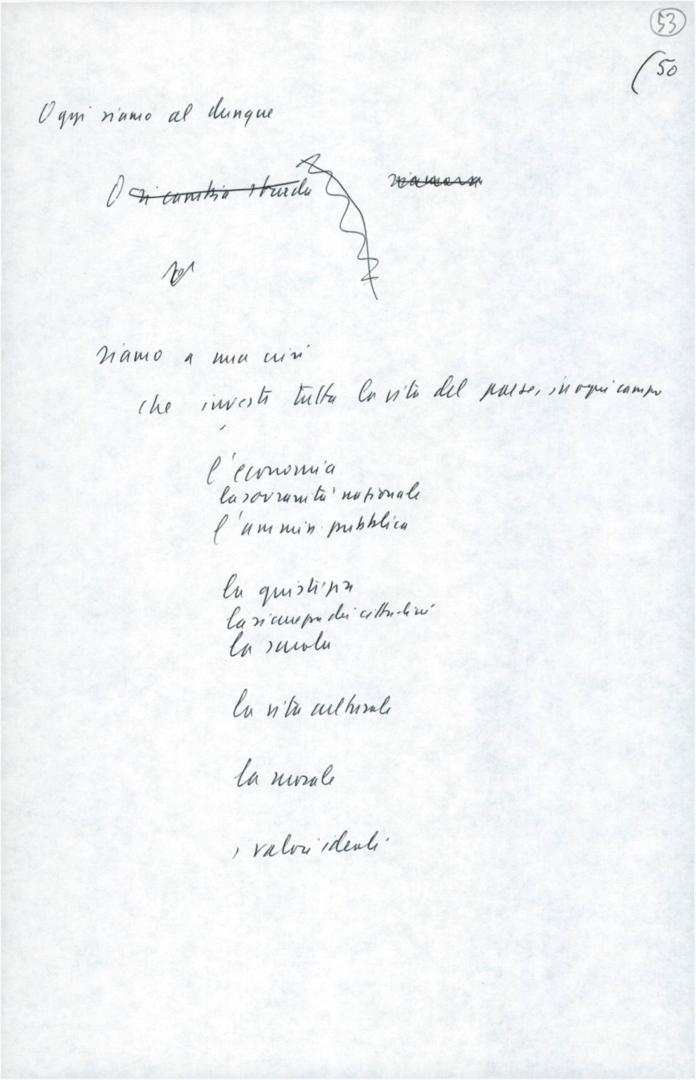 53
(50
Oggi siamo al dunque
O si cambia strada siamo a
siamo a una crisi
che investe tutta la vita del paese, in ogni campo
l'economia
la sovranità nazionale
l'ammin. pubblica
la giustizia
la sicurezza dei cittadini
la scuola
la vita culturale
la morale
i valori ideali